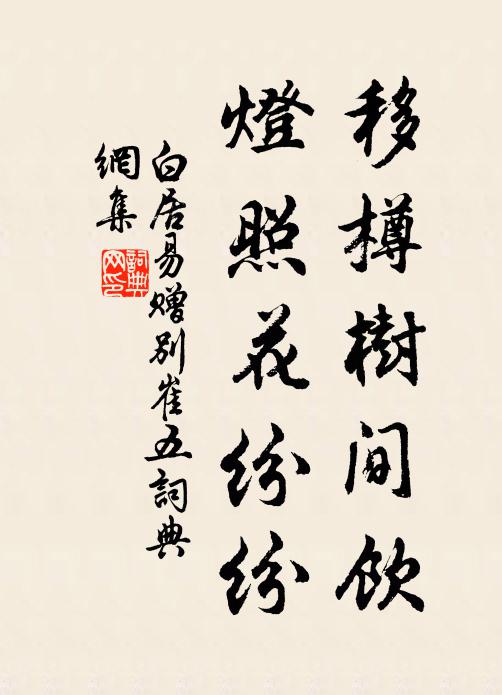 移樽樹間飲
燈照花紛紛
白居易贈別崔五詞典
網集
詞典
网印